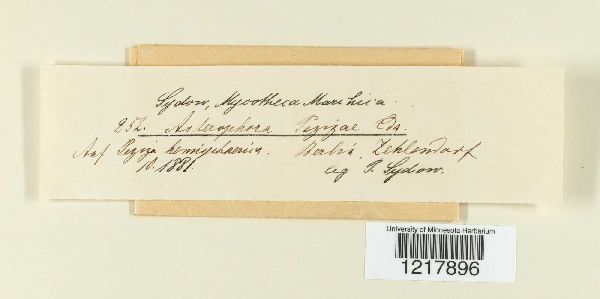 Sydow, Mycotheca Marchica.
252. Asterophora Pezizae Cda.
Auf Peziza hemisphaerica. Berlin, Zehlendorf
10. 1881. leg P. Sydow.
University of Minnesota Herbarium
1217896